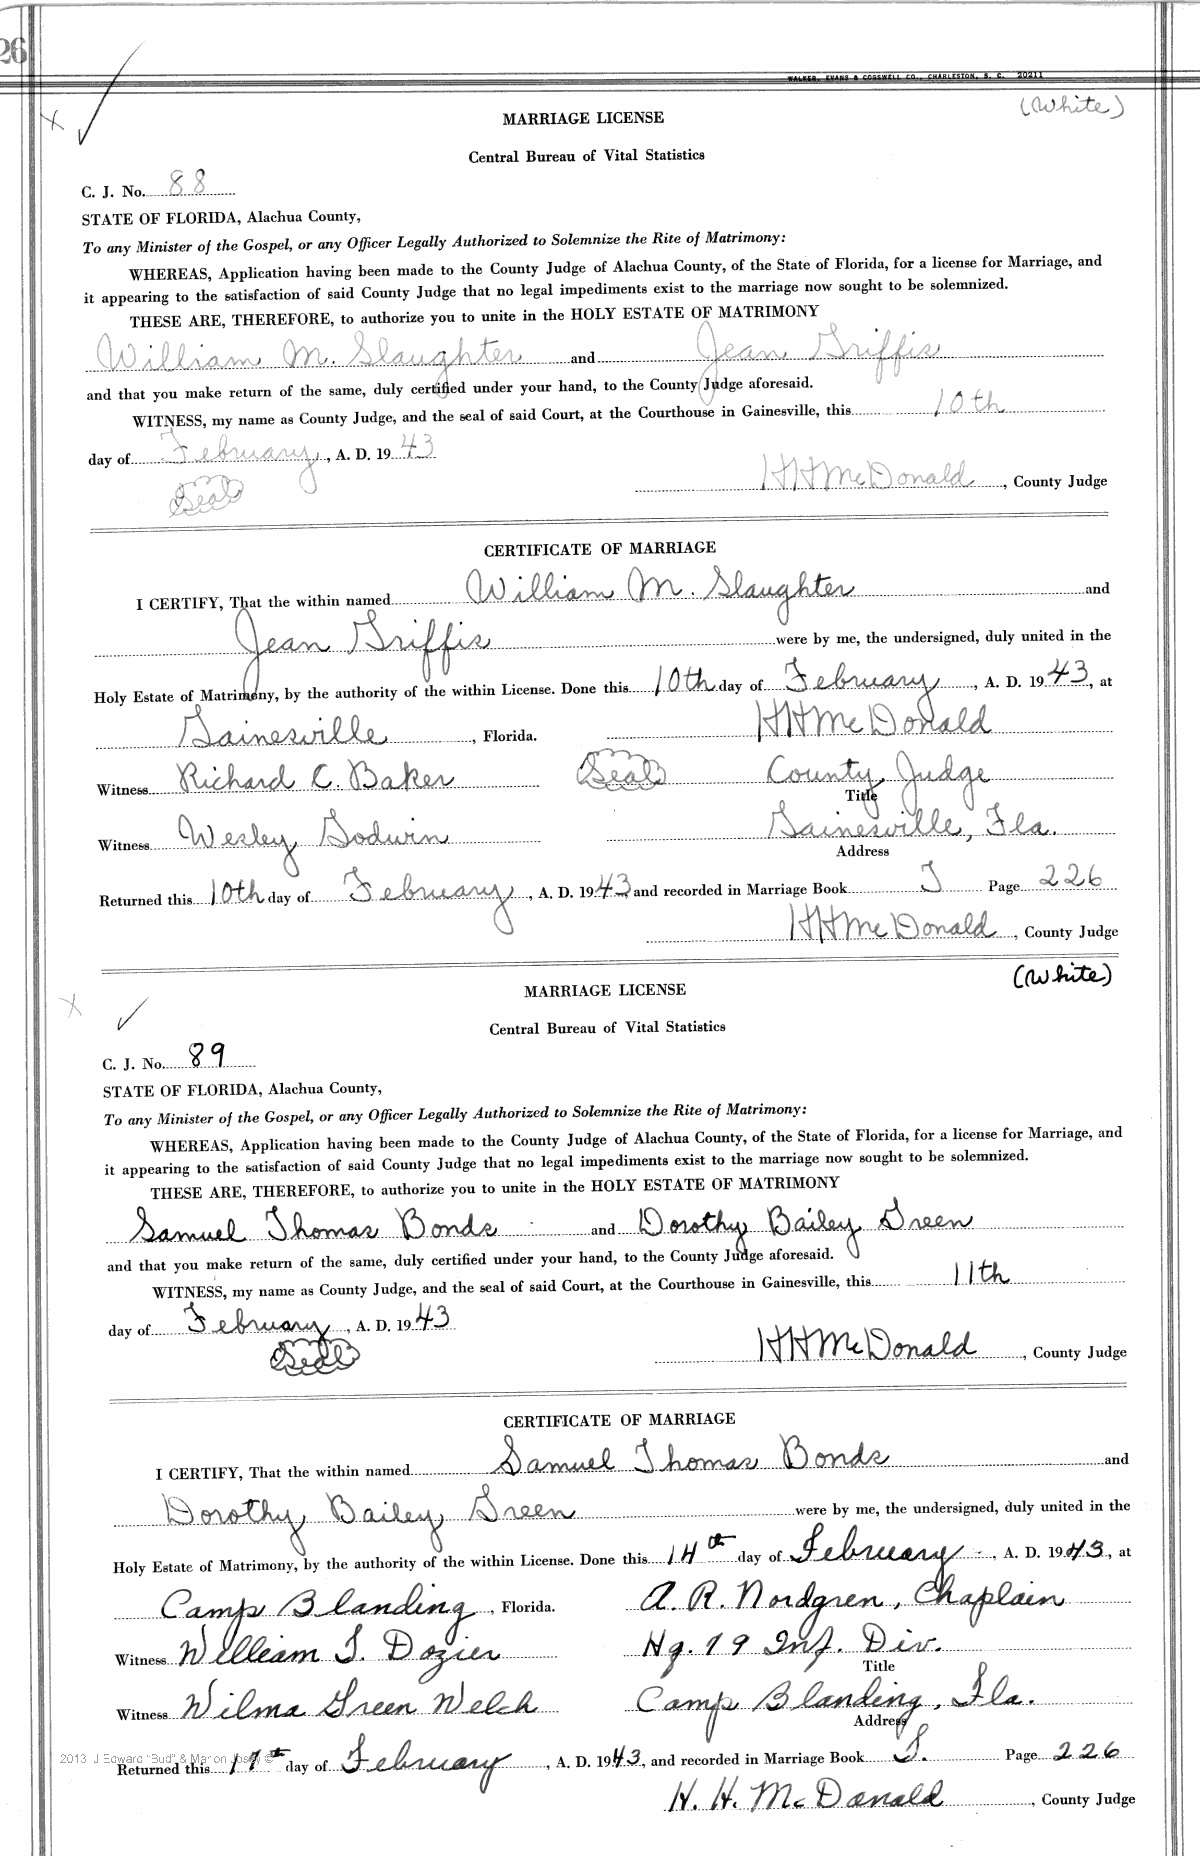 26
WALKER, EVANS & COGSWELL CO., CHARLESTON, S. C. 20211
(White)
MARRIAGE LICENSE
Central Bureau of Vital Statistics
C. J. No. 88
STATE OF FLORIDA, Alachua County,
To any Minister of the Gospel, or any Officer Legally Authorized to Solemnize the Rite of Matrimony:
WHEREAS, Application having been made to the County Judge of Alachua County, of the State of Florida, for a license for Marriage, and
it appearing to the satisfaction of said County Judge that no legal impediments exist to the marriage now sought to be solemnized.
THESE ARE, THEREFORE, to authorize you to unite in the HOLY ESTATE OF MATRIMONY
William M. Slaughter and Jean Griffis
and that you make return of the same, duly certified under your hand, to the County Judge aforesaid.
WITNESS, my name as County Judge, and the seal of said Court, at the Courthouse in Gainesville, this 10th
day of February, A. D. 1943
Seal
HHMcDonald, County Judge
CERTIFICATE OF MARRIAGE
I CERTIFY, That the within named William M. Slaughter and
Jean Griffis were by me, the undersigned, duly united in the
Holy Estate of Matrimony, by the authority of the within License. Done this 10th day of February, A. D. 1943, at
Gainesville, Florida. HHMcDonald
Witness Richard C. Baker Seal County Judge
Title
Witness Wesley Godwin Gainesville, Fla.
Address
Returned this 10th day of February, A. D. 1943, and recorded in Marriage Book J Page 226
HHMcDonald, County Judge
(White)
MARRIAGE LICENSE
Central Bureau of Vital Statistics
C. J. No. 89
STATE OF FLORIDA, Alachua County,
To any Minister of the Gospel, or any Officer Legally Authorized to Solemnize the Rite of Matrimony:
WHEREAS, Application having been made to the County Judge of Alachua County, of the State of Florida, for a license for Marriage, and
it appearing to the satisfaction of said County Judge that no legal impediments exist to the marriage now sought to be solemnized.
THESE ARE, THEREFORE, to authorize you to unite in the HOLY ESTATE OF MATRIMONY
Samuel Thomas Bonds and Dorothy Bailey Green
and that you make return of the same, duly certified under your hand, to the County Judge aforesaid.
WITNESS, my name as County Judge, and the seal of said Court, at the Courthouse in Gainesville, this 11th
day of February, A. D. 1943
Seal
HHMcDonald, County Judge
CERTIFICATE OF MARRIAGE
I CERTIFY, That the within named Samuel Thomas Bonds and
Dorothy Bailey Green were by me, the undersigned, duly united in the
Holy Estate of Matrimony, by the authority of the within License. Done this 14th day of February, A. D. 1943, at
Camp Blanding, Florida. A. R. Nordgren, Chaplain
Witness William T. Dozier Hq. 79 Inf. Div.
Title
Witness Wilma Green Welch Camp Blanding, Fla.
Address
2013 J Edward "Bud" & Marion Josey ©
Returned this 17th day of February, A. D. 1943, and recorded in Marriage Book J. Page 226
H. H. McDonald, County Judge